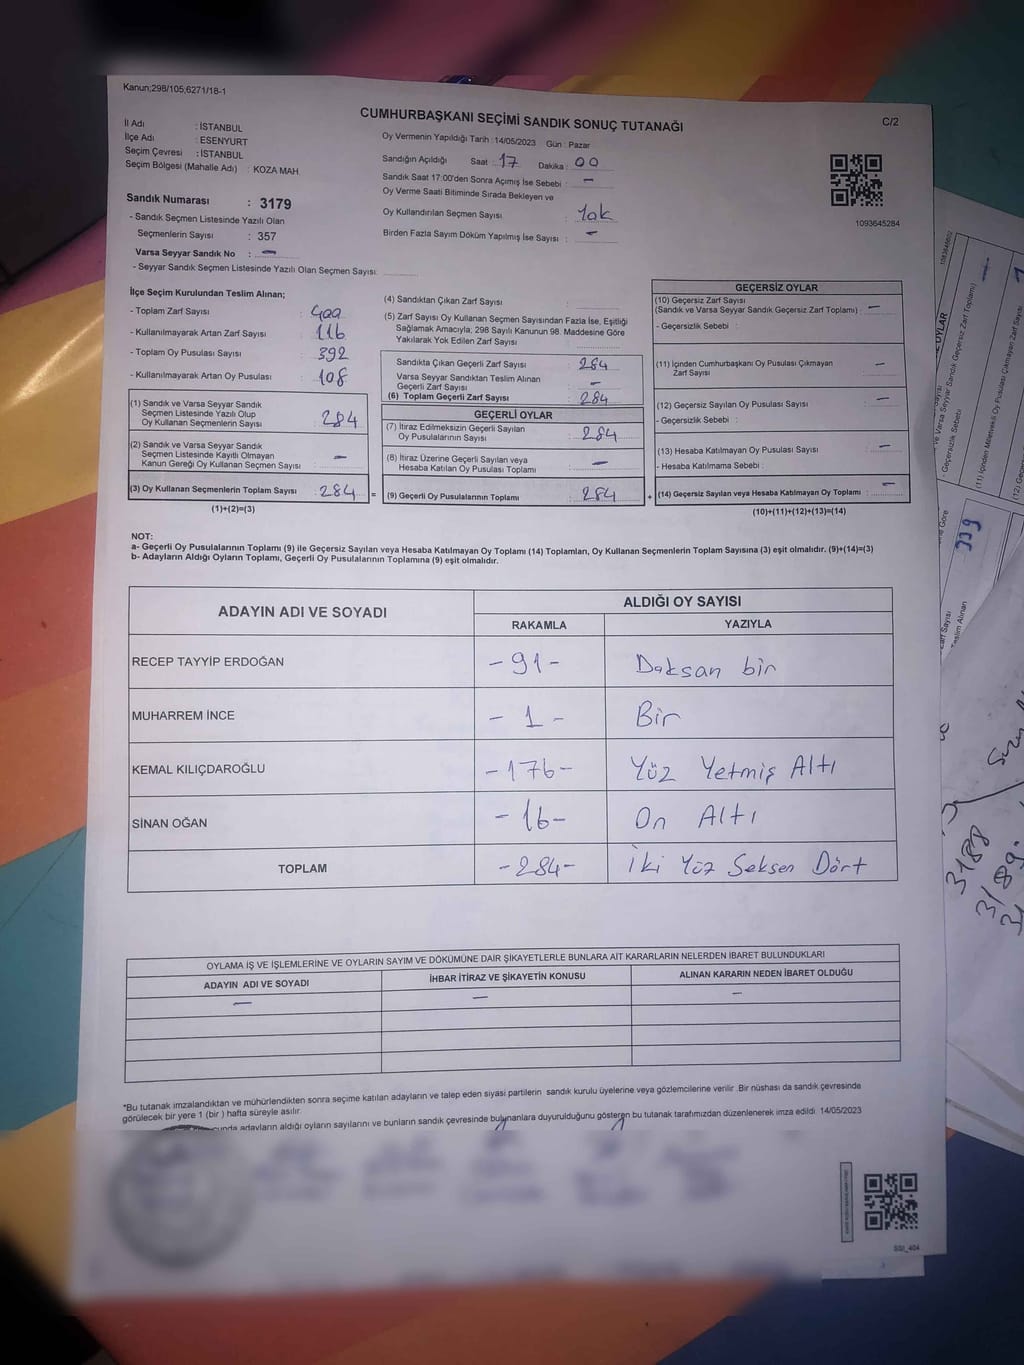 Kanun;298/105;6271/18-1
CUMHURBAŞKANI SEÇİMİ SANDIK SONUÇ TUTANAĞI
C/2
İl Adı : İSTANBUL
İlçe Adı : ESENYURT
Seçim Çevresi : İSTANBUL
Seçim Bölgesi (Mahalle Adı) : KOZA MAH.
Oy Vermenin Yapıldığı Tarih :14/05/2023 Gün : Pazar
Sandığın Açıldığı Saat : 17 Dakika : 00
Sandık Saat 17:00'den Sonra Açımış İse Sebebi : –
Oy Verme Saati Bitiminde Sırada Bekleyen ve
Oy Kullandırılan Seçmen Sayısı : Yok
Birden Fazla Sayım Döküm Yapılmış İse Sayısı : –
1093645284
Sandık Numarası : 3179
- Sandık Seçmen Listesinde Yazılı Olan
Seçmenlerin Sayısı : 357
Varsa Seyyar Sandık No : –
- Seyyar Sandık Seçmen Listesinde Yazılı Olan Seçmen Sayısı:
İlçe Seçim Kurulundan Teslim Alınan;
- Toplam Zarf Sayısı : 400
- Kullanılmayarak Artan Zarf Sayısı : 116
- Toplam Oy Pusulası Sayısı : 392
- Kullanılmayarak Artan Oy Pusulası : 108
(1) Sandık ve Varsa Seyyar Sandık
Seçmen Listesinde Yazılı Olup
Oy Kullanan Seçmenlerin Sayısı : 284
(2) Sandık ve Varsa Seyyar Sandık
Seçmen Listesinde Kayıtlı Olmayan
Kanun Gereği Oy Kullanan Seçmen Sayısı : –
(3) Oy Kullanan Seçmenlerin Toplam Sayısı : 284 =
(1)+(2)=(3)
(4) Sandıktan Çıkan Zarf Sayısı :
(5) Zarf Sayısı Oy Kullanan Seçmen Sayısından Fazla İse, Eşitliği
Sağlamak Amacıyla; 298 Sayılı Kanunun 98. Maddesine Göre
Yakılarak Yok Edilen Zarf Sayısı :
Sandıkta Çıkan Geçerli Zarf Sayısı : 284
Varsa Seyyar Sandıktan Teslim Alınan
Geçerli Zarf Sayısı : –
(6) Toplam Geçerli Zarf Sayısı : 284
GEÇERLİ OYLAR
(7) İtiraz Edilmeksizin Geçerli Sayılan
Oy Pusulalarının Sayısı : 284
(8) İtiraz Üzerine Geçerli Sayılan veya
Hesaba Katılan Oy Pusulası Toplamı : –
(9) Geçerli Oy Pusulalarının Toplamı : 284 +
GEÇERSİZ OYLAR
(10) Geçersiz Zarf Sayısı
(Sandık ve Varsa Seyyar Sandık Geçersiz Zarf Toplamı) : –
- Geçersizlik Sebebi :
(11) İçinden Cumhurbaşkanı Oy Pusulası Çıkmayan
Zarf Sayısı : –
(12) Geçersiz Sayılan Oy Pusulası Sayısı : –
- Geçersizlik Sebebi :
(13) Hesaba Katılmayan Oy Pusulası Sayısı : –
- Hesaba Katılmama Sebebi :
(14) Geçersiz Sayılan veya Hesaba Katılmayan Oy Toplamı : –
(10)+(11)+(12)+(13)=(14)
NOT:
a- Geçerli Oy Pusulalarının Toplamı (9) ile Geçersiz Sayılan veya Hesaba Katılmayan Oy Toplamı (14) Toplamları, Oy Kullanan Seçmenlerin Toplam Sayısına (3) eşit olmalıdır. (9)+(14)=(3)
b- Adayların Aldığı Oyların Toplamı, Geçerli Oy Pusulalarının Toplamına (9) eşit olmalıdır.
ADAYIN ADI VE SOYADI
ALDIĞI OY SAYISI
RAKAMLA YAZIYLA
RECEP TAYYİP ERDOĞAN -91- Doksan bir
MUHARREM İNCE - 1 - Bir
KEMAL KILIÇDAROĞLU -176- Yüz Yetmiş Altı
SİNAN OĞAN - 16- On Altı
TOPLAM -284- İki Yüz Seksen Dört
OYLAMA İŞ VE İŞLEMLERİNE VE OYLARIN SAYIM VE DÖKÜMÜNE DAİR ŞİKAYETLERLE BUNLARA AİT KARARLARIN NELERDEN İBARET BULUNDUKLARI
ADAYIN ADI VE SOYADI İHBAR İTİRAZ VE ŞİKAYETİN KONUSU ALINAN KARARIN NEDEN İBARET OLDUĞU
– – –
*Bu tutanak imzalandıktan ve mühürlendikten sonra seçime katılan adayların ve talep eden siyasi partilerin sandık kurulu üyelerine veya gözlemcilerine verilir .Bir nüshası da sandık çevresinde
görülecek bir yere 1 (bir ) hafta süreyle asılır.
adayların aldığı oyların sayılarını ve bunların sandık çevresinde bulunanlara duyurulduğunu gösteren bu tutanak tarafımızdan düzenlenerek imza edildi. 14/05/2023
SSI_404
(11) İçinden Milletvekili Oy Pusulası
339
3188
3189